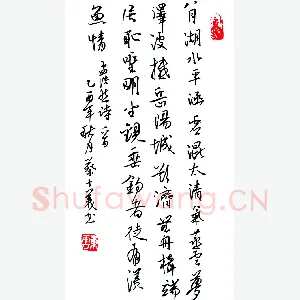 八月湖水平涵虚混太清氣蒸雲夢
澤波撼岳陽城欲濟無舟楫端
居恥聖明坐觀垂釣者徒有羨
魚情
孟浩然诗一首
乙酉年秋月蔡士義书
Shufawang.CN